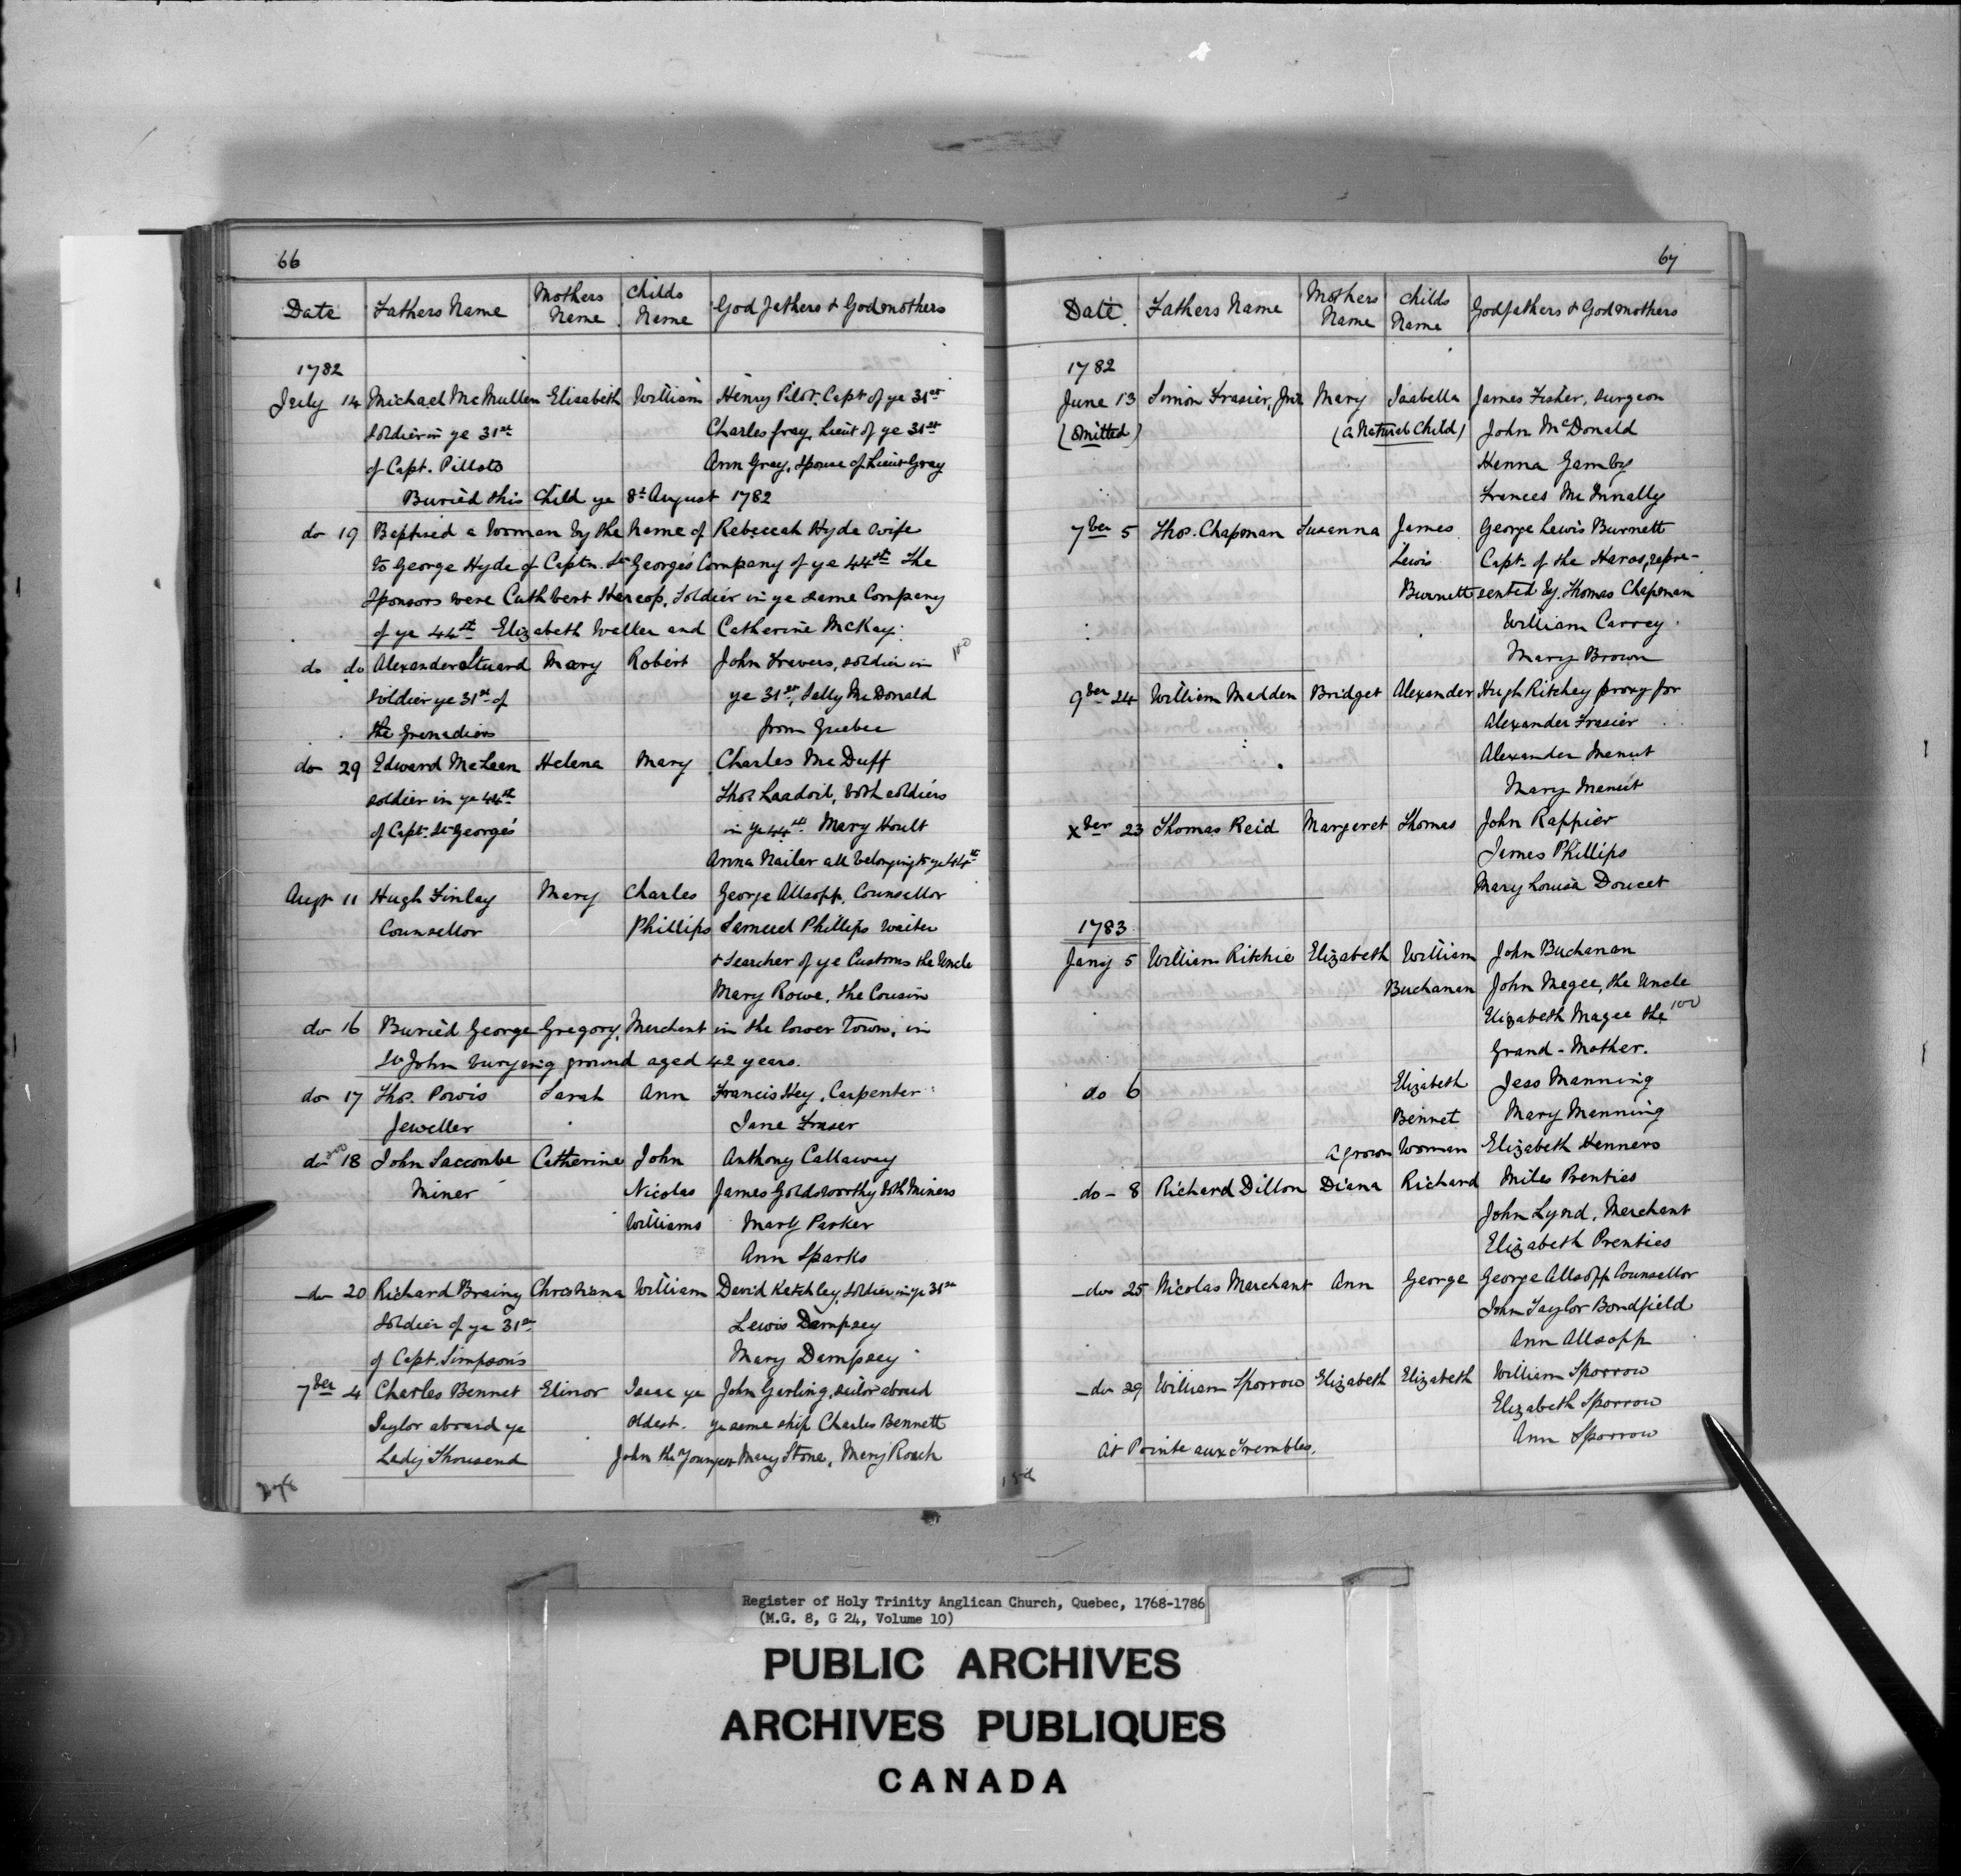 66
Date Fathers Name Mothers Name Childs Name God fathers & Godmothers
1782
July 14 Michael McMullen Elisabeth William Henry Pilot. Capt of ye 31st
soldier in ye 31st Charles Gray, Lieut of ye 31st
of Capt. Pillots Ann Gray, Spouse of Lieut Gray
Buried this Child ye 8t August 1782
do 19 Baptised a Woman by the Name of Rebeccah Hyde wife
to George Hyde of Captn. St George's Company of ye 44st The
Sponsors were Cuthbert Harcop, Soldier in ye same Company
of ye 44st Elizabeth Walker and Catherine McKay.
do do Alexander Stuard Mary Robert John Travers, soldier in 100
soldier ye 31st of ye 31st, Sally McDonald
the Grenadiers from Quebec
do 29 Edward McLean Helena Mary Charles McDuff
soldier in ye 44st Thos Laadoil, both soldiers
of Capt. St George's in ye 44st Mary Hoult
Anna Nailer all belonging to ye 44st
Augt 11 Hugh Finlay Mary Charles George Allsopp, Counsellor
Counsellor Phillips Samuel Phillips waiter
& Searcher of ye Customs the Uncle
Mary Rowe, the Cousin
do 16 Buried George Gregory, Merchant in the lower Town, in
St John burying ground aged 42 years.
do 17 Thos. Powis Sarah Ann Francis Hey, Carpenter
Jeweller Jane Fraser
do 18 John Saccombe Catherine John Anthony Callaway
Miner Nicolas James Goldsworthy both Miners
Williams Mary Parker
Ann Sparks
do 20 Richard Brainy Christiana William David Ketchley, soldier in ye 31st
Soldier of ye 31st Lewis Dampsey
of Capt. Simpson's Mary Dampsey
7ber 4 Charles Bennet Elinor Isaac ye John Garling, sailor aboard
Saylor aboard ye oldest. ye same ship Charles Bennett
Lady Thousend John the Younger Mary Stone, Mary Roach
67
Date Fathers Name Mothers Name Childs Name Godfathers & Godmothers
1782
June 13 Simon Frasier, Jnr Mary Isabella James Fisher, surgeon
(Omitted) (a Natural Child) John McDonald
Henna Gamby
Frances McInnally
7ber 5 Thos. Chapman Susanna James George Lewis Burnett
Lewis Capt. of the Haros, repre-
Burnett sented by Thomas Chapman
William Carrey
Mary Brown
9ber 24 William Madden Bridget Alexander Hugh Ritchey proxy for
Alexander Frasier
Alexander Menut
Mary Menut
xber 23 Thomas Reid Margaret Thomas John Rappier
James Phillips
Mary Louisa Doucet
1783
Jany 5 William Ritchie Elizabeth William John Buchanan
Buchanan John Megee, the Uncle
Elizabeth Magee the 100
Grand-Mother.
do 6 Elizabeth Jess Manning
Bennet Mary Manning
a grown Woman Elizabeth Henners
do - 8 Richard Dillon Diana Richard Miles Prenties
John Lynd, Merchant
Elizabeth Prenties
do 25 Nicolas Marchant Ann George George Allsopp Counsellor
John Taylor Bondfield
Ann Allsopp
do 29 William Sporrow Elizabeth Elizabeth William Sporrow
Elizabeth Sporrow
Ann Sporrow
At Pointe aux Trembles.
Register of Holy Trinity Anglican Church, Quebec, 1768-1786
(M.G. 8, G 24, Volume 10)
PUBLIC ARCHIVES
ARCHIVES PUBLIQUES
CANADA